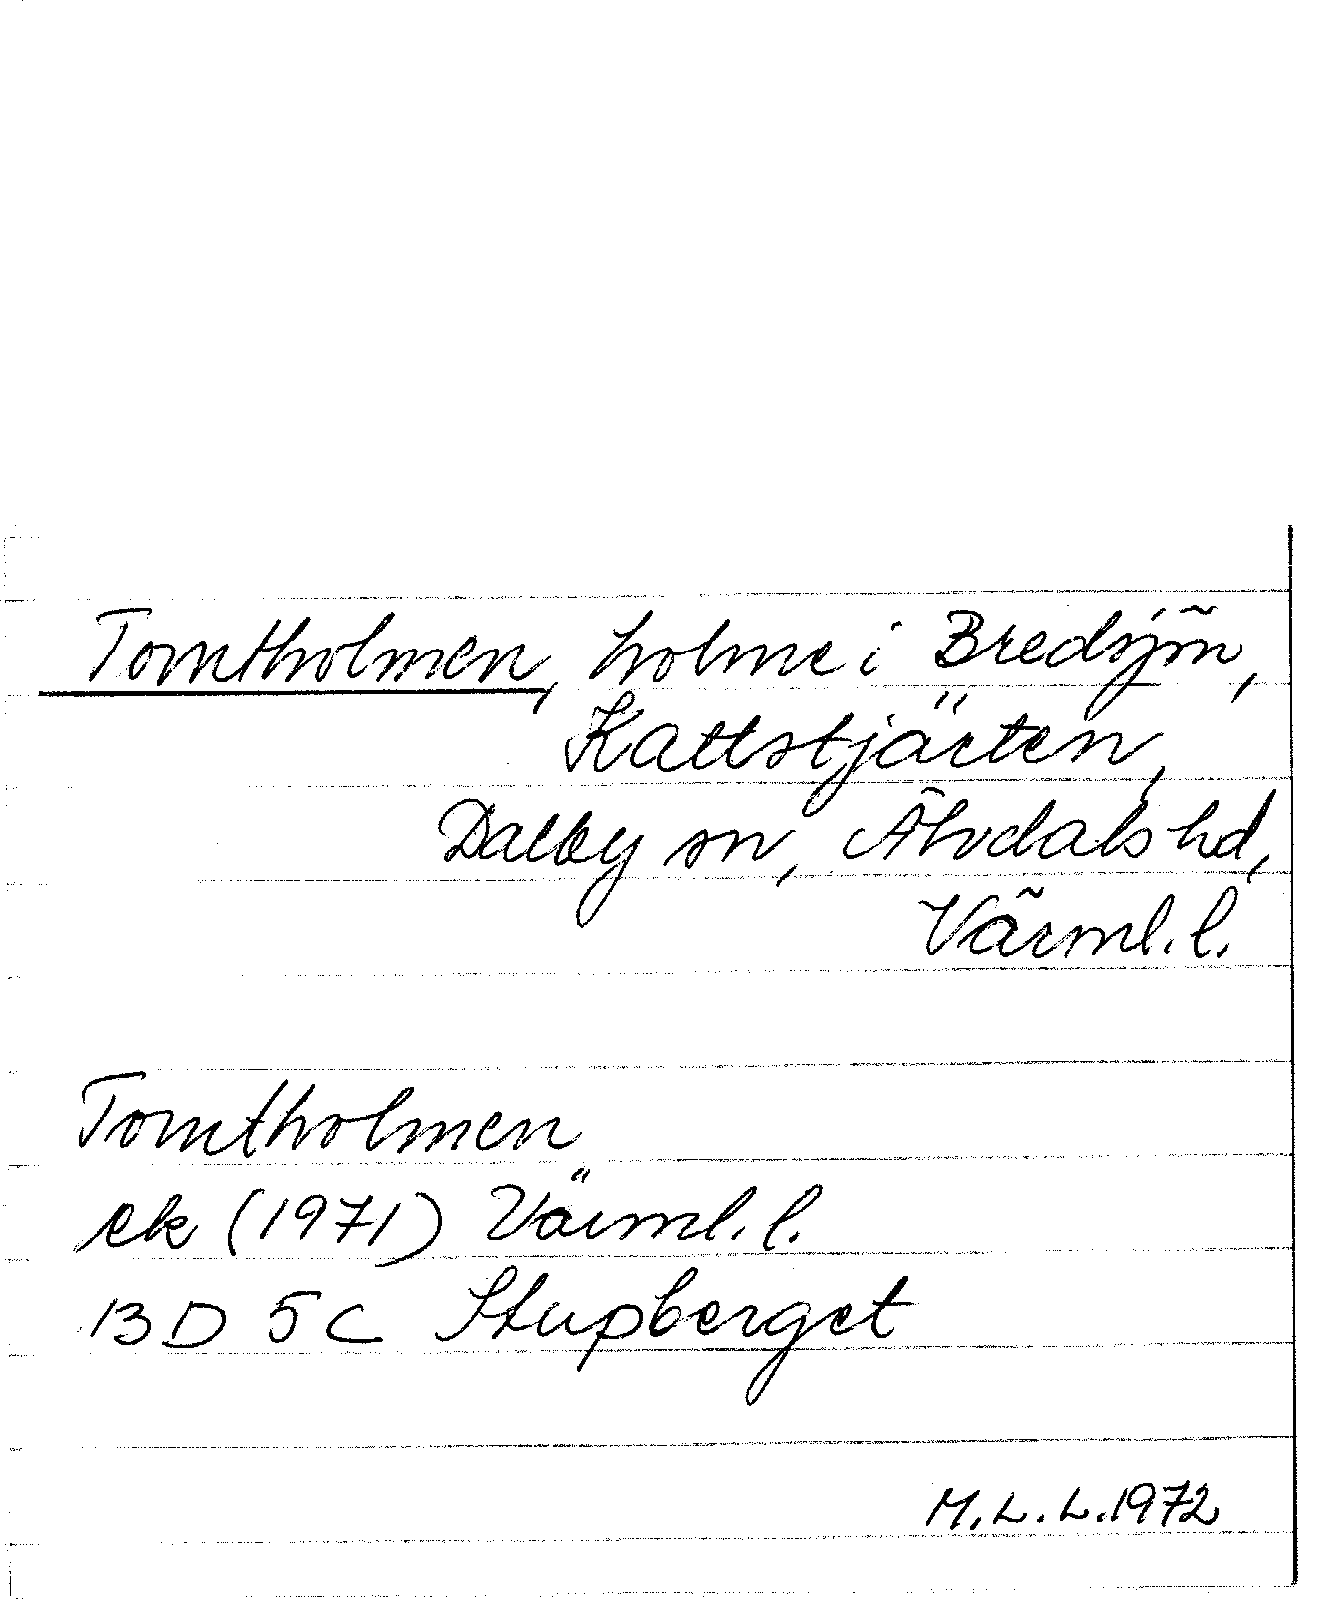 Tomtholmen, holme i Bredsjön,
Kattstjärten,
Dalby sn, Älvdals hd,
Värml. l.
Tomtholmen
ek (1971) Värml. l.
13D 5c Stupberget
M. L. L. 1972